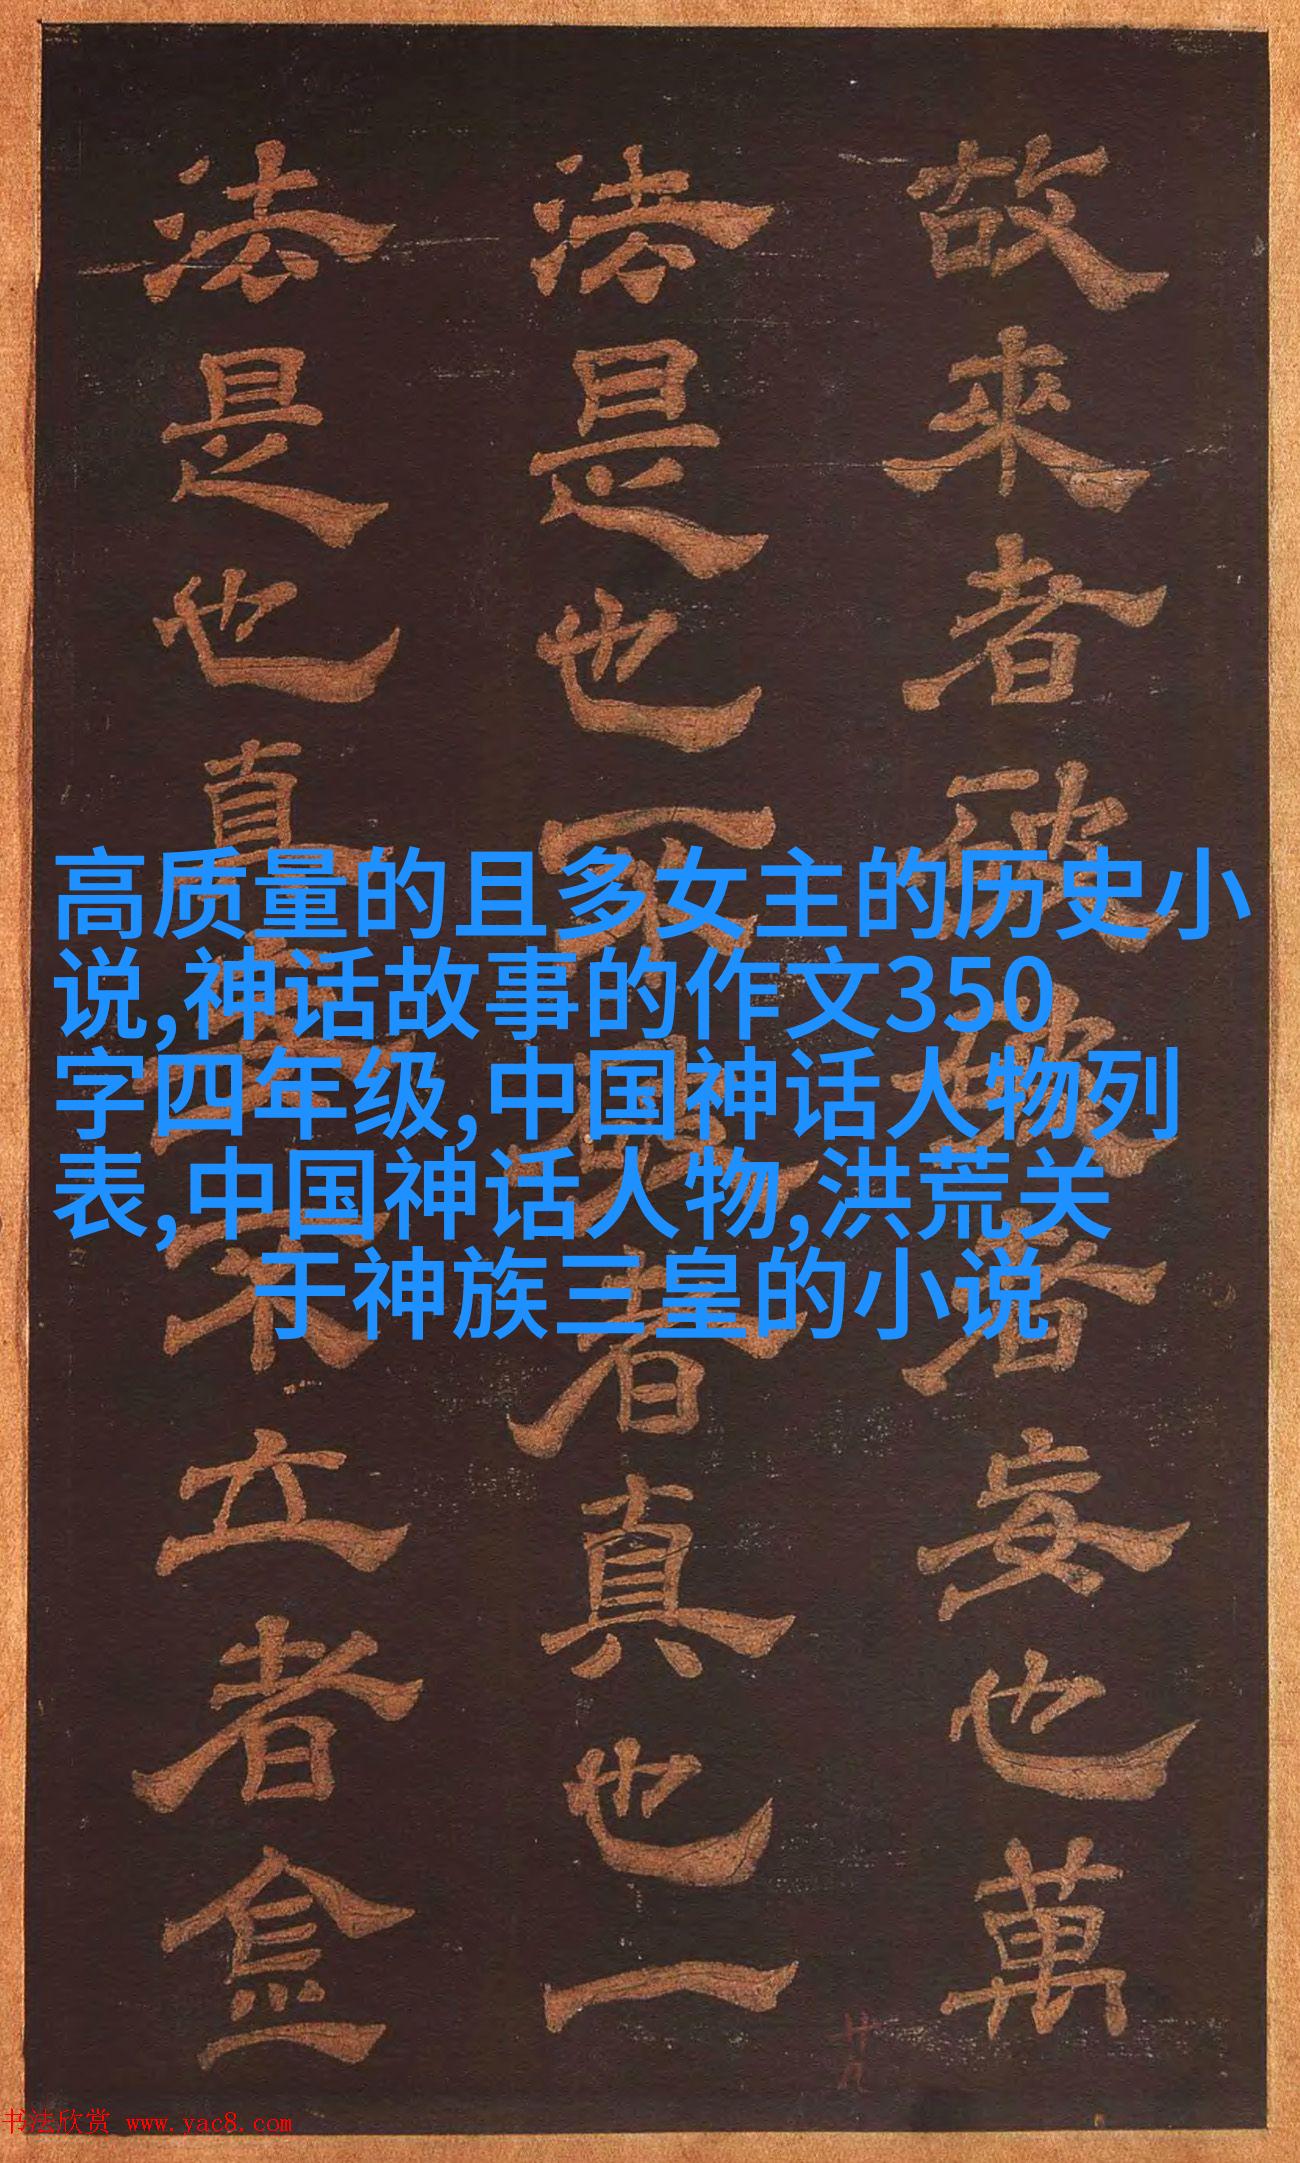 故來者
者妄也萬
法是也不
者真也一
法是也真
不立者
高质量的且多女主的历史小
说,神话故事的作文350
字四年级,中国神话人物列
表,中国神话人物,洪荒关
于神族三皇的小说
书法欣赏 www.yac8.com